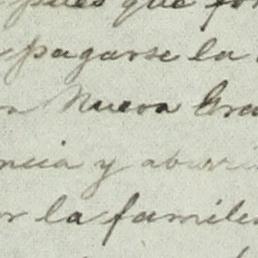 pues que
pagarse la
Nueva Gra
ncia y aburri
la famili